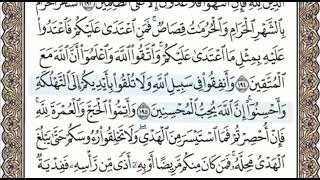 الدين لله فإن انتهوا فلا عدوان إلا على الظالمين ١٩٣ الشهر الحرام
بِالشَّهْرِ الْحَرَامِ وَالْحُرُمَاتُ قِصَاصٌ ۚ فَمَنِ اعْتَدَىٰ عَلَيْكُمْ فَاعْتَدُوا
عَلَيْهِ بِمِثْلِ مَا اعْتَدَىٰ عَلَيْكُمْ ۚ وَاتَّقُوا اللَّهَ وَاعْلَمُوا أَنَّ اللَّهَ مَعَ
الْمُتَّقِينَ ١٩٤ وَأَنفِقُوا فِي سَبِيلِ اللَّهِ وَلَا تُلْقُوا بِأَيْدِيكُمْ إِلَى التَّهْلُكَةِ
وَأَحْسِنُوا ۛ إِنَّ اللَّهَ يُحِبُّ الْمُحْسِنِينَ ١٩٥ وَأَتِمُّوا الْحَجَّ وَالْعُمْرَةَ لِلَّهِ ۚ
فَإِنْ أُحْصِرْتُمْ فَمَا اسْتَيْسَرَ مِنَ الْهَدْيِ ۖ وَلَا تَحْلِقُوا رُءُوسَكُمْ حَتَّىٰ يَبْلُغَ
الْهَدْيُ مَحِلَّهُ ۚ فَمَن كَانَ مِنكُم مَّرِيضًا أَوْ بِهِ أَذًى مِّن رَّأْسِهِ فَفِدْيَةٌ